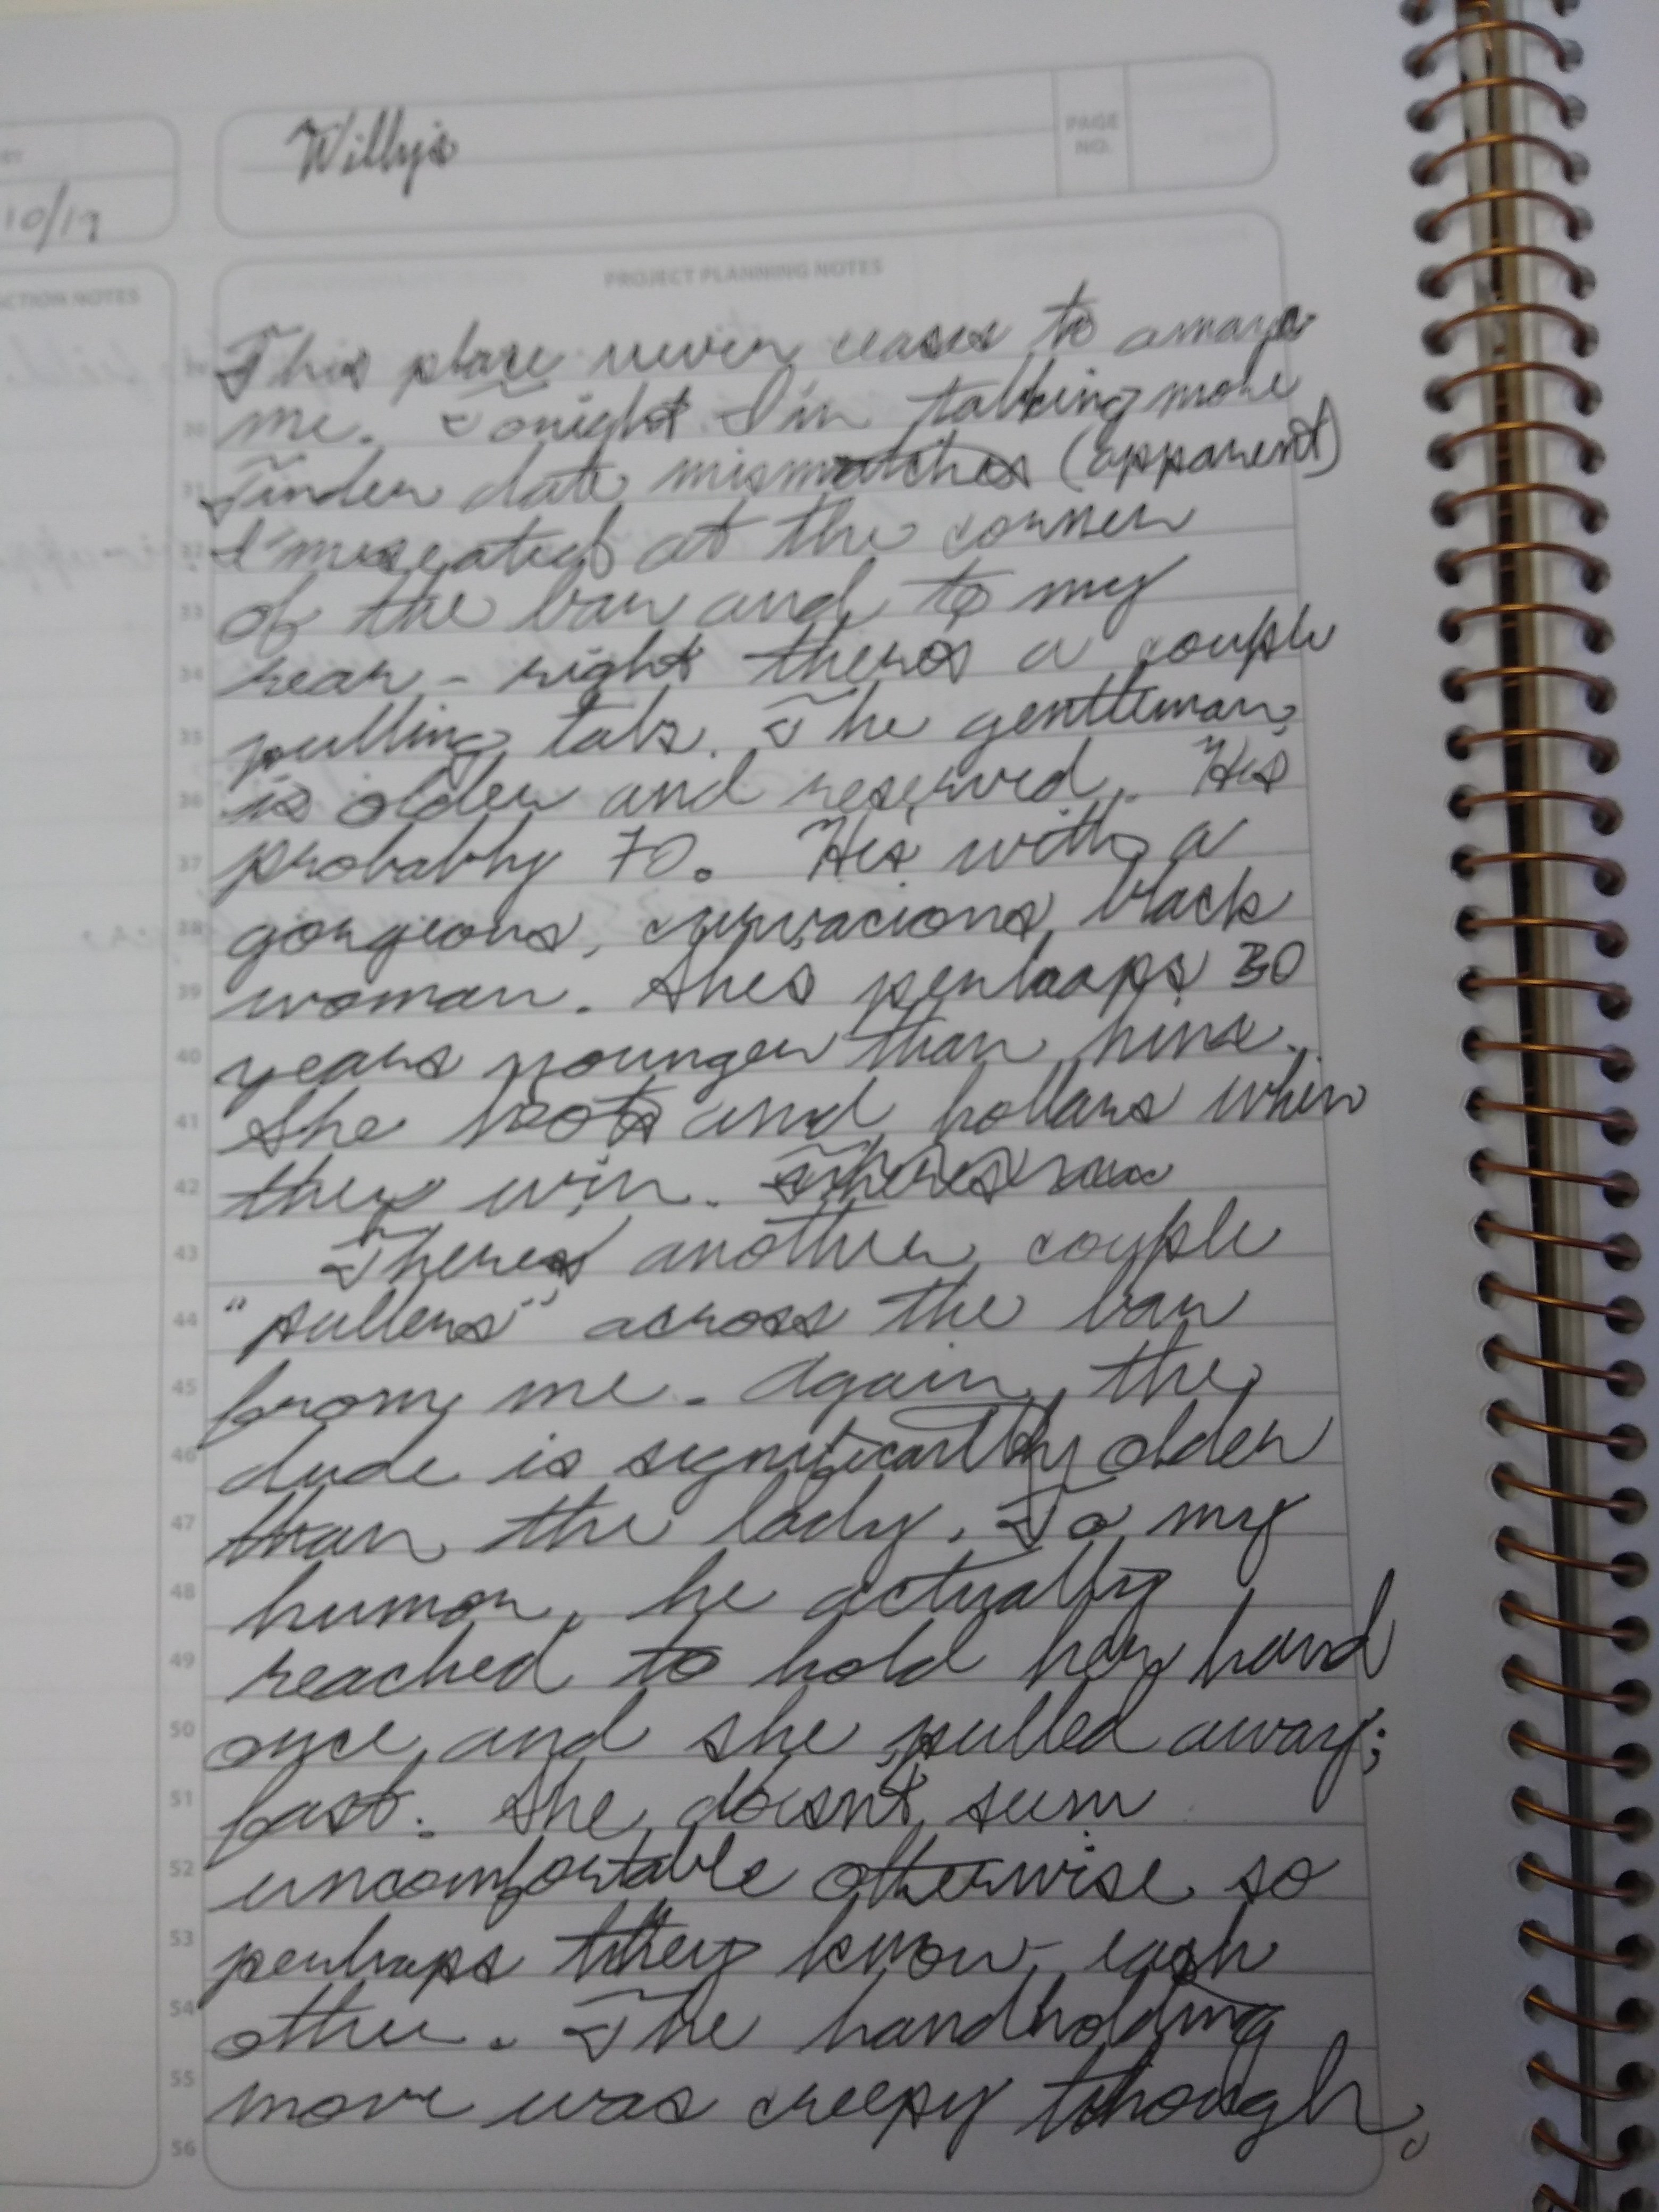 Willy's
PAGE
NO.
10/19
CTION NOTES
PROJECT PLANNING NOTES
This place never ceases to amaze
me. Tonight I'm talking more
31 Tinder date mismatches (apparent)
32 I'm seated at the corner
33 of the bar and to my
34 rear-right there's a couple
35 pulling tabs. The gentleman
36 is older and reserved. He's
37 probably 70. He's with a
38 gorgeous, curvacious, black
39 woman. She's perhaps 30
40 years younger than him.
41 She hoots and hollars when
42 they win.
43 There's another couple
44 "pullers" across the bar
45 from me. Again, the
46 dude is significantly older
47 than the lady. To my
48 humor, he actually
49 reached to hold her hand
50 once and she pulled away;
51 fast. She doesn't seem
52 uncomfortable otherwise so
53 perhaps they know each
54 other. The handholding
55 move was creepy though.
56